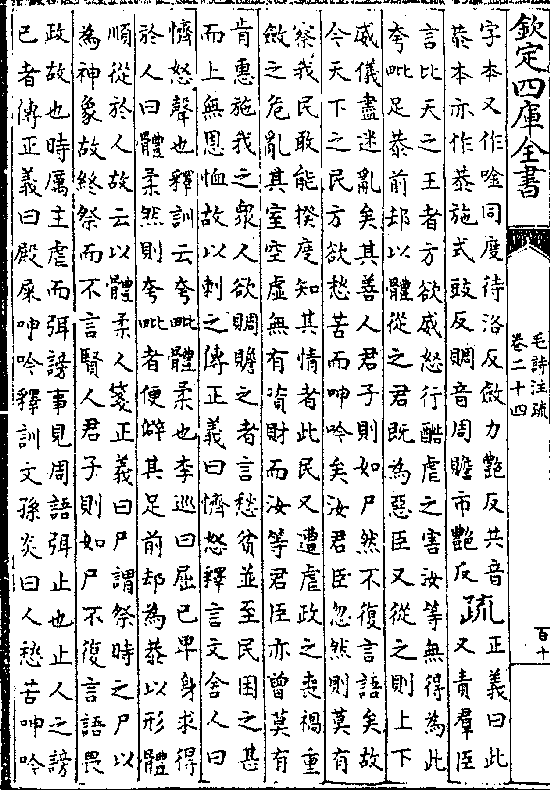 欽定四庫全書
毛詩注疏
卷二十四
百十
字本又作唫同度待洛反斂力艷反共音
恭本亦作恭施式豉反賙音周贍市艷反疏正義曰此又責羣臣
言比天之王者方欲威怒行酷虐之害汝等無得為此
夸毗足恭前却以體從之君既為惡臣又從之則上下
威儀盡迷亂矣其善人君子則如尸然不復言語矣故
今天下之民方欲愁苦而呻吟矣汝君臣忽然則莫有
察我民敢能揆度知其情者此民又遭虐政之喪禍重
斂之危亂其室空虛無有資財而汝等君臣亦曾莫有
肯惠施我之衆人欲賙贍之者言愁貧並至民困之甚
而上無恩恤故以刺之傳正義曰懠怒釋言文舍人曰
懠怒聲也釋訓云夸毗體柔也李巡曰屈己卑身求得
於人曰體柔然則夸毗者便辟其足前却為恭以形體
順從於人故云以體柔人箋正義曰尸謂祭時之尸以
為神象故終祭而不言賢人君子則如尸不復言語畏
政故也時厲王虐而弭謗事見周語弭止也止人之謗
己者傳正義曰殿屎呻吟釋訓文孫炎曰人愁苦呻吟